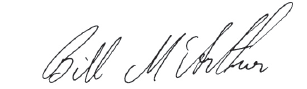 Bill McArthur